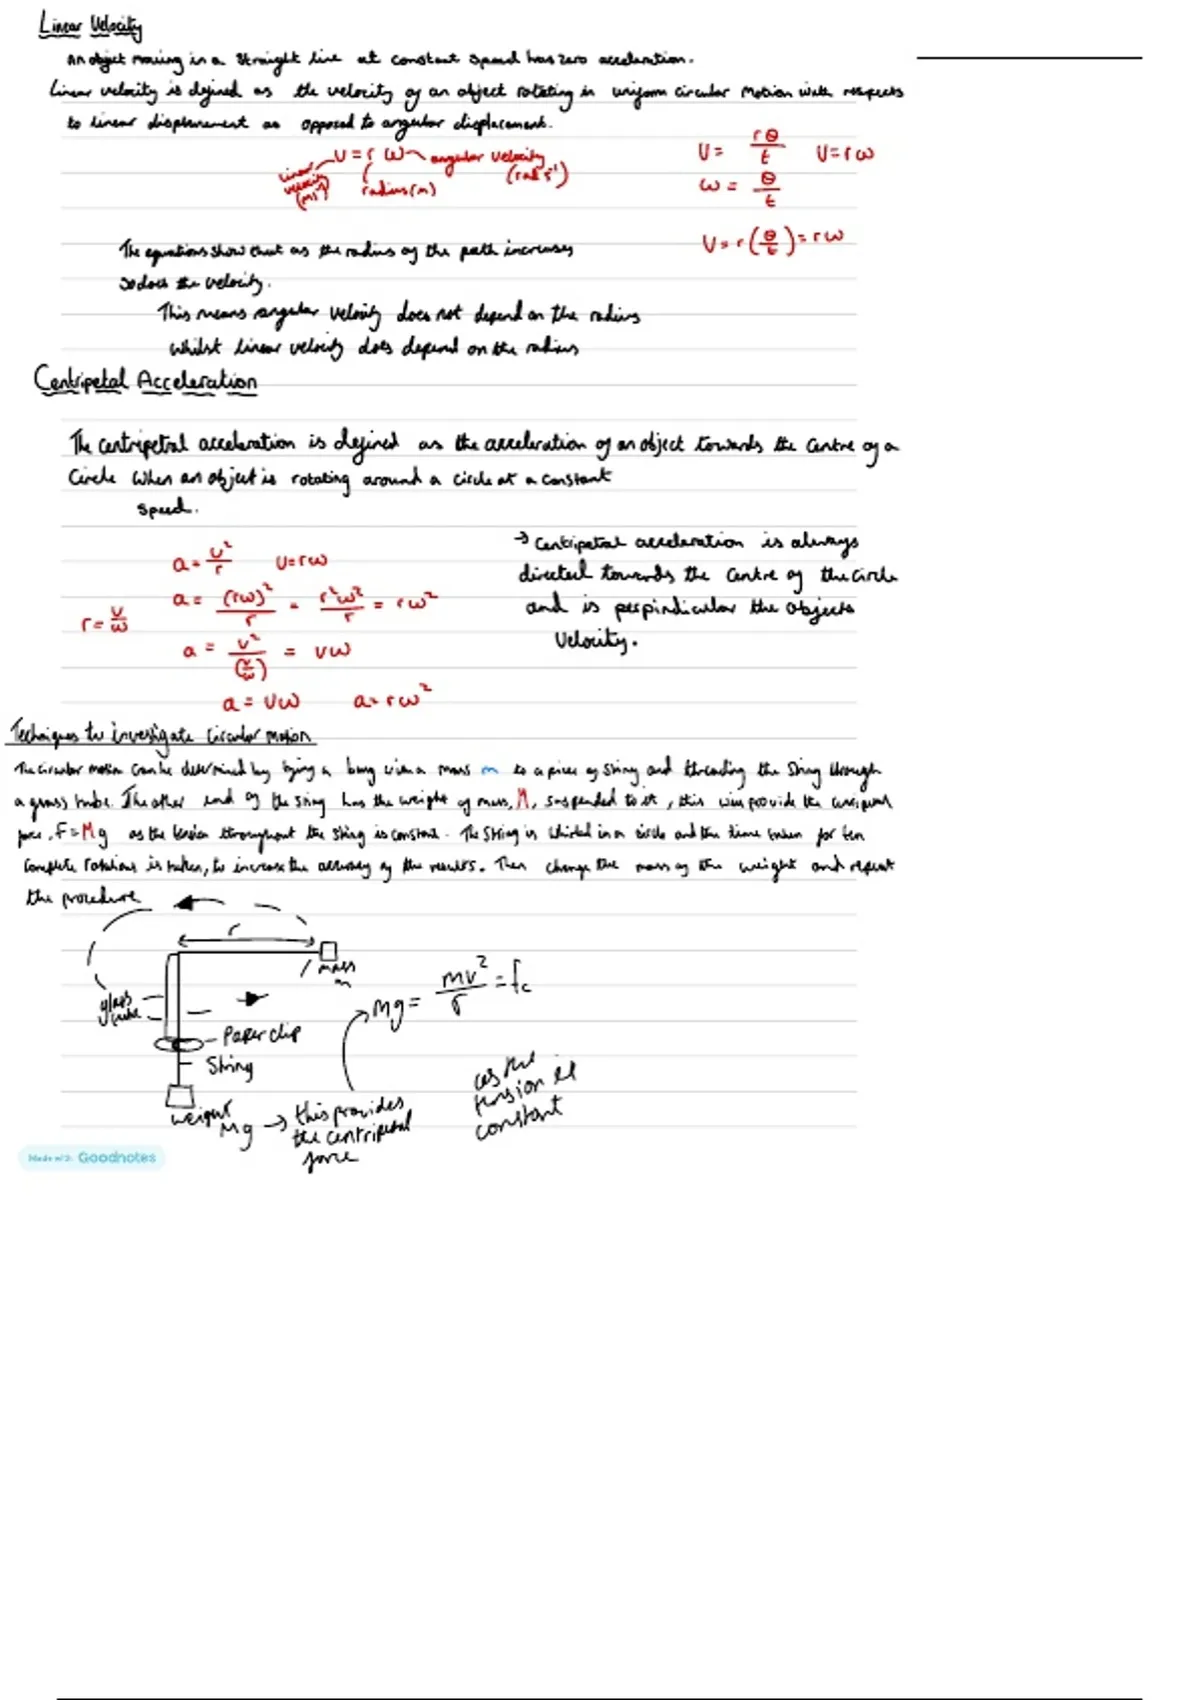 Linear Velocity
An object moving in a straight line at constant speed has zero acceleration.
Linear velocity is defined as the velocity of an object rotating in uniform circular motion with respects
to linear displacement as opposed to angular displacement.
v = r ω angular velocity (rad s⁻¹)
linear velocity (ms⁻¹)
radius (m)
v = rθ/t v = rω
ω = θ/t
v = r(θ/t) = rω
The equations show that as the radius of the path increases
so does the velocity.
This means angular velocity does not depend on the radius
whilst linear velocity does depend on the radius
Centripetal Acceleration
The centripetal acceleration is defined as the acceleration of an object towards the centre of a
circle when an object is rotating around a circle at a constant
speed.
a = v²/r v = rω
a = (rω)²/r = r²ω²/r = rω²
r = v/ω
a = v²/(v/ω) = vω
a = vω a = rω²
→ Centripetal acceleration is always
directed towards the centre of the circle
and is perpindicular the objects
velocity.
Techniques to investigate circular motion
The circular motion can be determined by tying a bung with a mass m to a piece of string and threading the string through
a glass tube. The other end of the string has the weight of mass, M, suspended to it, this will provide the centripetal
force, F = Mg as the tension throughout the string is constant. The string is whirled in a circle and the time taken for ten
complete rotations is taken, to increase the accuracy of the results. Then change the mass of the weight and repeat
the procedure
r
mass
m
glass
tube
Paper clip
String
weight
Mg → this provides
the centripetal
force
Mg = mv²/r = Fc
as the
tension is
constant
Made with Goodnotes